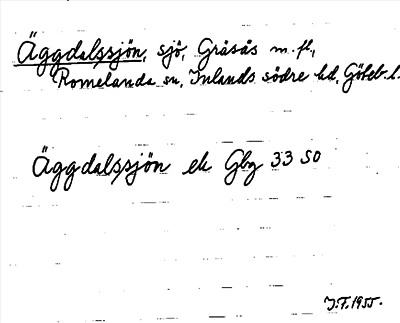 Äggdalssjön, sjö, Gråsås m. fl.,
Romelanda sn, Inlands södre hd, Göteb. l.
Äggdalssjön ek Gbg 33 SO
J.F. 1955.